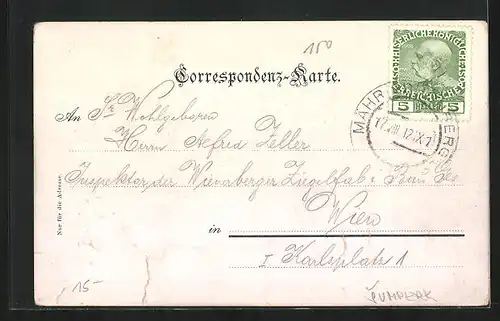 150
Correspondenz-Karte.
KAISERLICHE KÖNIGLICHE ÖSTERREICHISCHE
5 5
MÄHR BERG
17.VIII.12.IX
An Sr Wohlgeboren
Herrn Alfred Zeller
Inspektor der Wienerberger Ziegelfab: Bau Ges
Wien
in
I Karlsplatz 1
Nur für die Adresse.
15-
ŠUMPERK